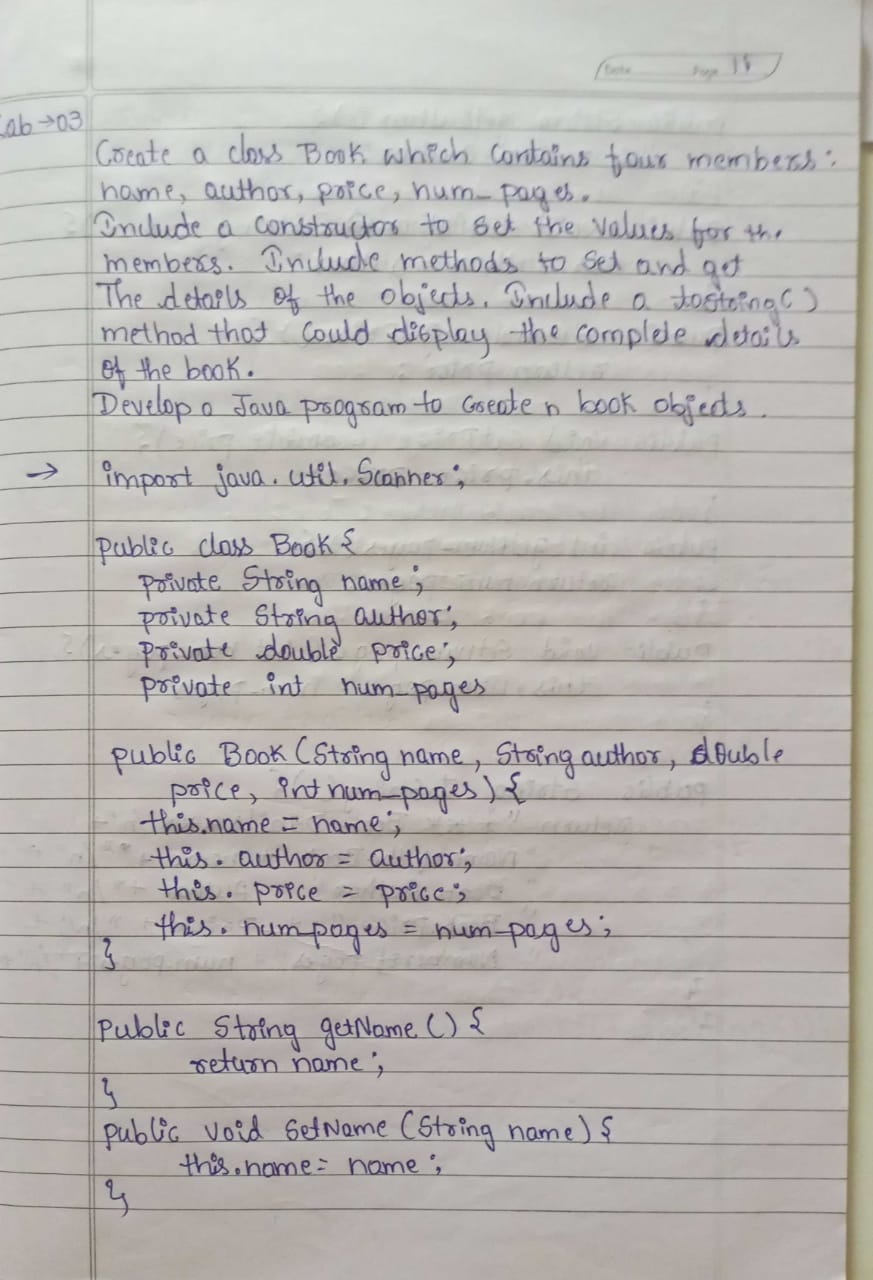 Date Page 18
Lab → 03
Create a class Book which contains four members:
name, author, price, num_pages.
Include a constructor to set the values for the
members. Include methods to set and get
The details of the objects. Include a toString()
method that could display the complete details
of the book.
Develop a Java program to create n book objects.
→ import java.util.Scanner;
public class Book {
private String name;
private String author;
private double price;
private int num_pages
public Book (String name, String author, double
price, int num_pages) {
this.name = name;
this.author = author;
this.price = price;
this.num_pages = num_pages;
}
public String getName () {
return name;
}
public void setName (String name) {
this.name = name;
}